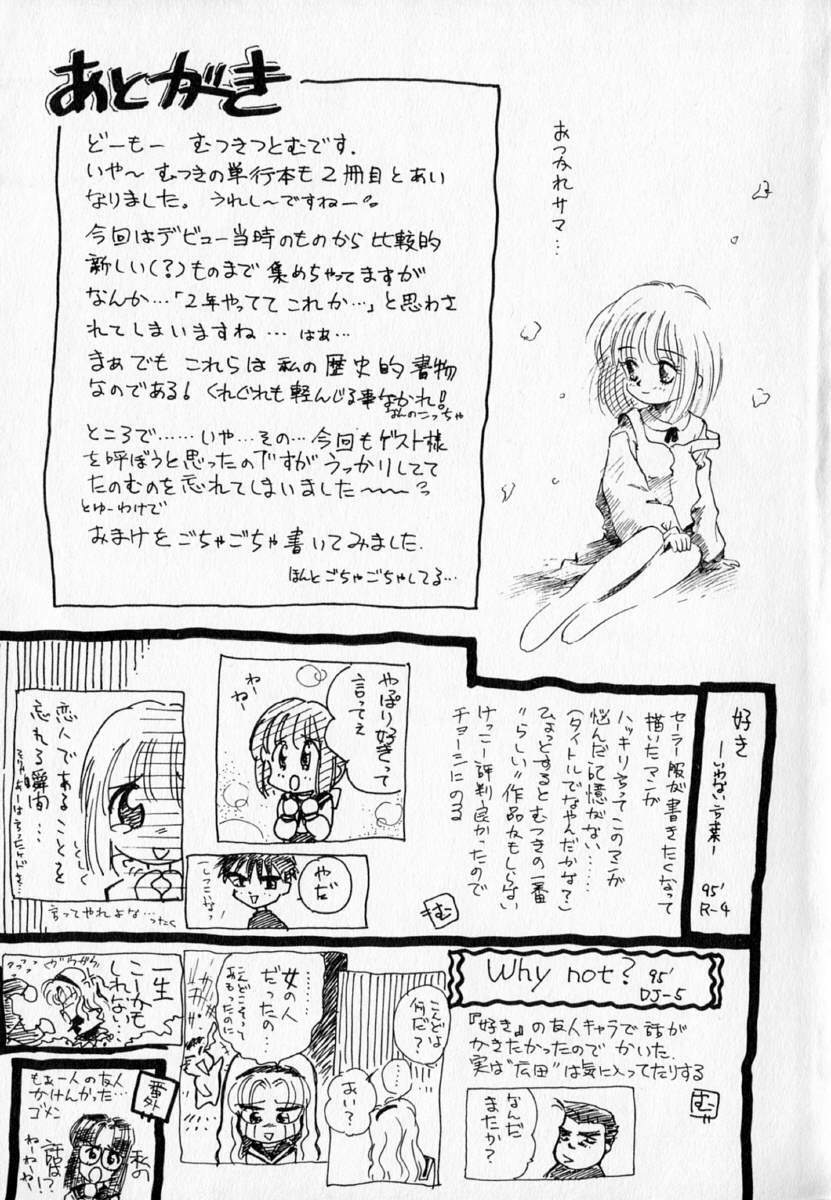 あとがき
どーもー　むつきつとむです.
いや〜 むつきの単行本も2冊目とあい
なりました。うれし〜ですねー
今回はデビュー当時のものから比較的
新しい(?)ものまで集めちゃってますが
なんか…「2年やってて これか…」と思わさ
れてしまいますね… はぁ…
まぁでも これらは私の歴史的書物
なのである! くれぐれも軽んじる事なかれ!
なんのこっちゃ
ところで……いや…その…今回もゲスト様
を呼ぼうと思ったのですがうっかりしてて
たのむのを忘れてしまいました〜〜
とゆーわけで
おまけをごちゃごちゃ書いてみました.
ほんとごちゃごちゃしてる…
おつかれサマ…
好き
―いわない言葉―
95'
R-4
セーラー服が書きたくなって
描いたマンガ
ハッキリ言ってこのマンガ
悩んだ記憶がない……
(タイトルでなやんだかな?)
ひょっとするとむつきの一番
"らしい"作品かもしらない
けっこー評判良かったので
チョーシにのる
む
やっぱり好きって
言ってェ
わー
ねー
やだ
しつこいなっ
恋人であることを
忘れる瞬間…
しくしく
言ってやれよな…ったく
Why not?
95'
DJ-5
『好き』の友人キャラで話が
かきたかったので かいた.
実は"広田"は気に入ってたりする
む
なんだ
またか?
こんどは
何だ?
あい?
女の人
だったの…
こんどこそって
おもったのに
一生
こーかも
しれない…
番外
もぉ一人の友人
かけんかった…
ゴメン
私の
話は!?
ねーねーっ